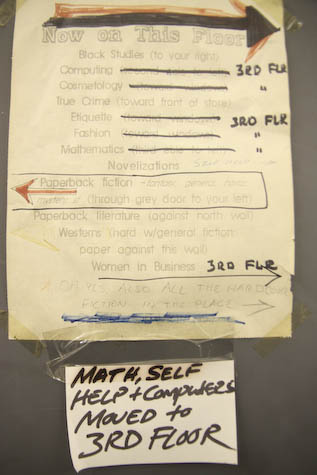 Now on This Floor
Black Studies (to your right)
Computing 3RD FLR
Cosmetology "
True Crime (toward front of store)
Etiquette (toward windows) 3RD FLR
Fashion (toward windows) "
Mathematics "
Novelizations
Paperback fiction - fantasy, general, horror,
(through grey door to your left)
Paperback literature (against north wall)
Westerns (hard w/general fiction;
paper against this wall)
Women in Business 3RD FLR
OH YES, ALSO ALL THE HARD
FICTION IN THE PLACE
MATH, SELF
HELP + COMPUTERS
MOVED to
3RD FLOOR